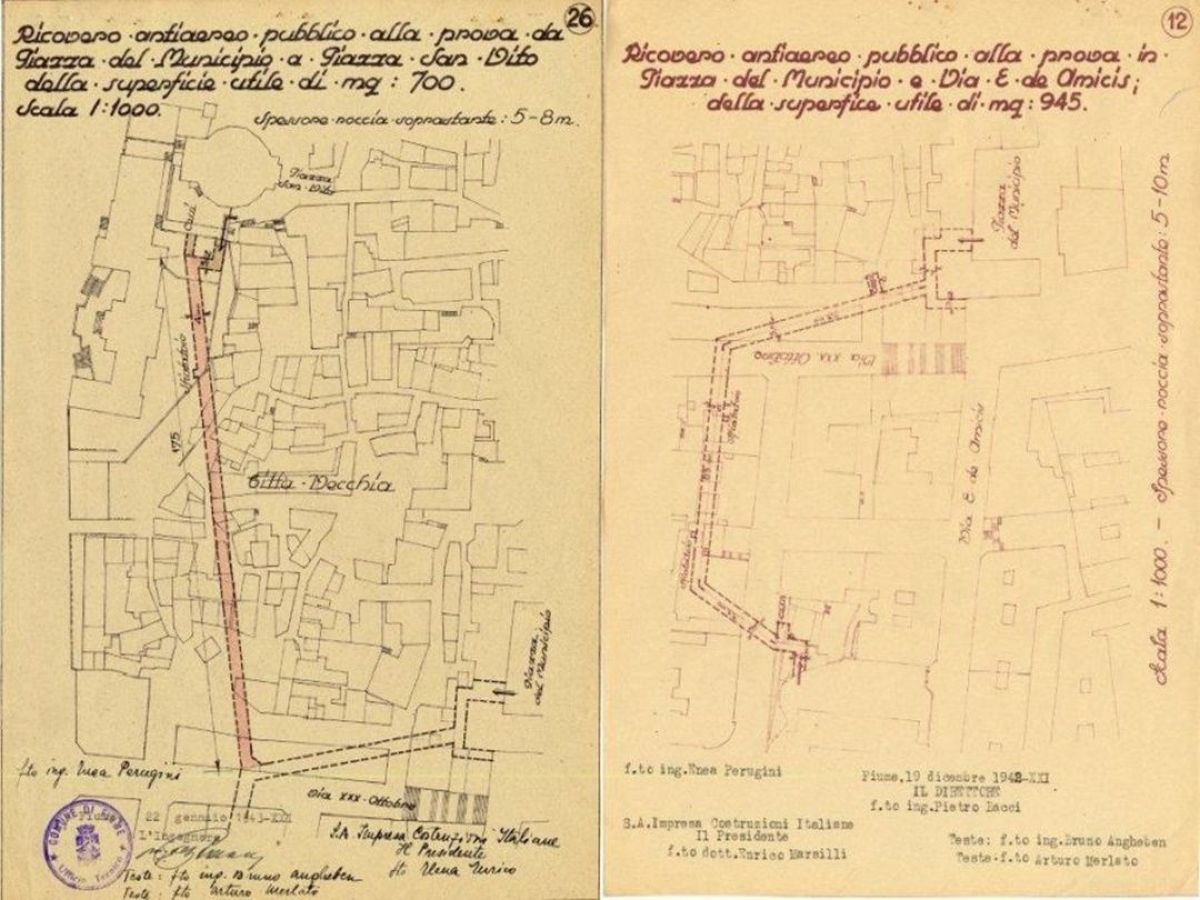 26
Ricovero · antiaereo · pubblico · alla · prova · da
Piazza · del · Municipio · a · Piazza · San · Vito
della · superficie · utile · di · mq : 700 .
Scala 1 : 1000.
Spessore · roccia · soprastante : 5 - 8 m .
Piazza
San · Vito
175
Città · Vecchia
Piazza
del Municipio
Via XXX · Ottobre
f.to ing. Enea Perugini
COMUNE DI FIUME
Ufficio Tecnico
Fiume
22 gennaio 1943-XXI
L'Ingegnere
S.A. Impresa Costruzioni Italiane
Il Presidente
Teste : f.to ing. Bruno Angheben
Teste : f.to Arturo Merlato
12
Ricovero · antiaereo · pubblico · alla · prova · in ·
Piazza · del · Municipio · e · Via · E · de · Amicis ;
della · superfice · utile · di · mq : 945 .
Piazza
del Municipio
Via XXX Ottobre
Via E de Amicis
Scala 1 : 1000 . - Spessore · roccia · soprastante : 5 - 10 m
f.to ing.Enea Perugini
Fiume,19 dicembre 1942-XXI
IL DIRETTORE
f.to ing.Pietro Bacci
S.A.Impresa Costruzioni Italiane
Il Presidente
f.to dott.Enrico Marsilli
Teste: f.to ing.Bruno Angheben
Teste:f.to Arturo Merlato